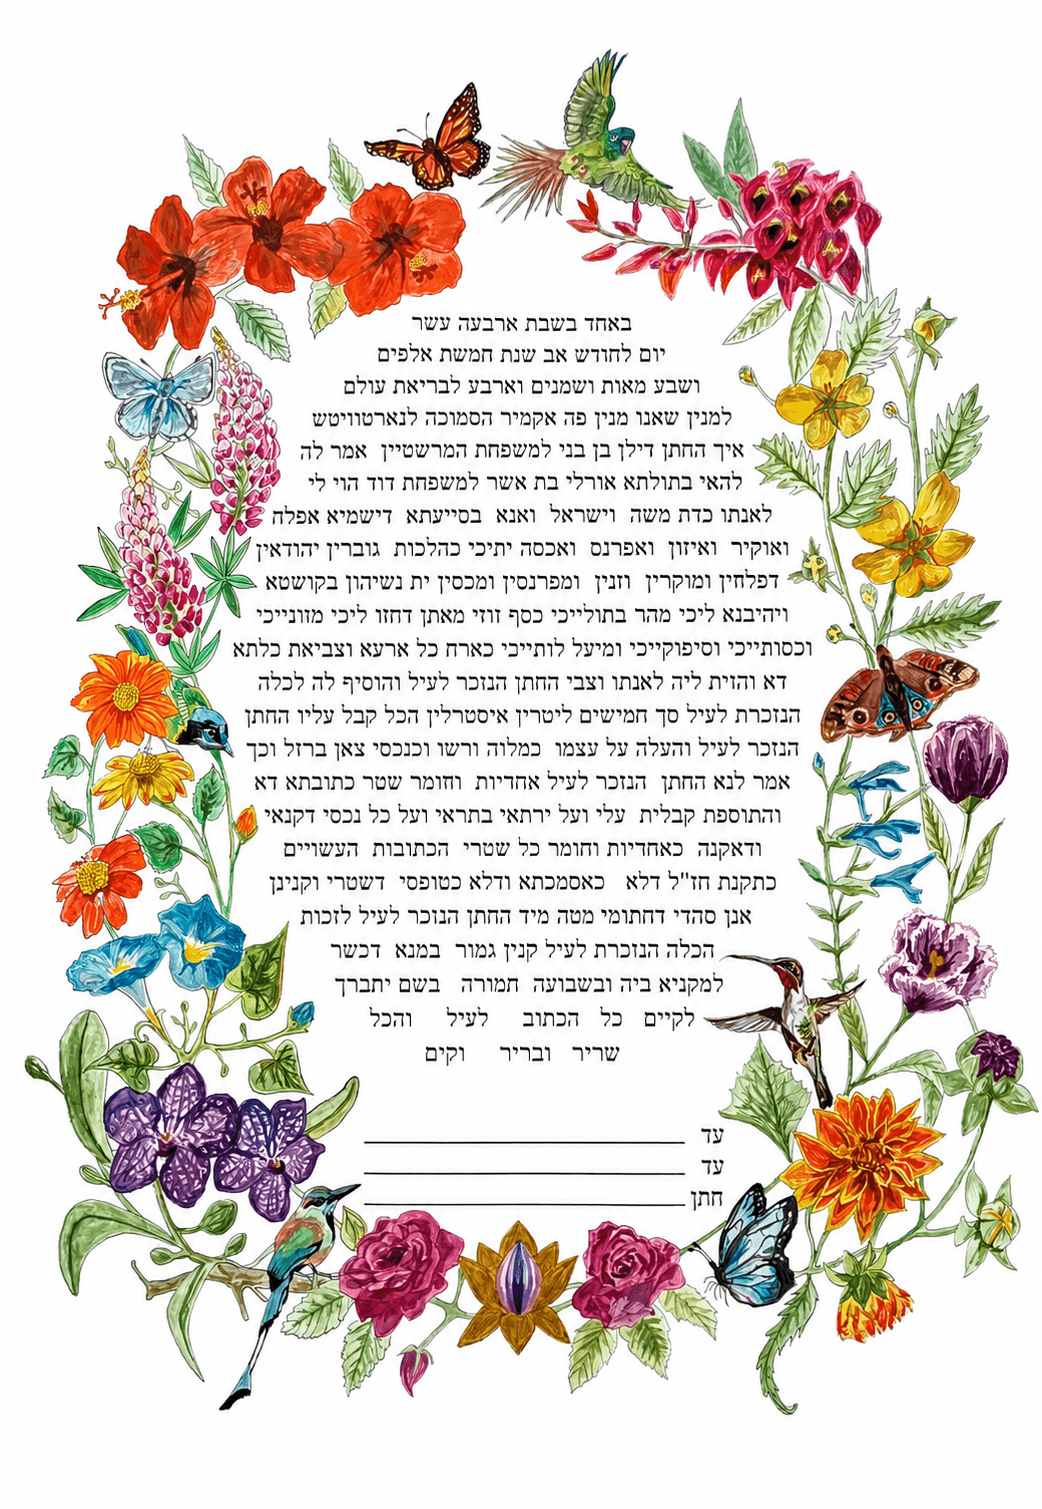 באחד בשבת ארבעה עשר
יום לחודש אב שנת חמשת אלפים
ושבע מאות ושמנים וארבע לבריאת עולם
למנין שאנו מנין פה אקמיר הסמוכה לנארטוויטש
איך החתן דילן בן בני למשפחת המרשטיין אמר לה
להאי בתולתא אורלי בת אשר למשפחת דוד הוי לי
לאנתו כדת משה וישראל ואנא בסייעתא דישמיא אפלח
ואוקיר ואיזון ואפרנס ואכסה יתיכי כהלכות גוברין יהודאין
דפלחין ומוקרין וזנין ומפרנסין ומכסין ית נשיהון בקושטא
ויהיבנא ליכי מהר בתולייכי כסף זוזי מאתן דחזו ליכי מזונייכי
וכסותייכי וסיפוקייכי ומיעל לותייכי כארח כל ארעא וצביאת כלתא
דא והזית ליה לאנתו וצבי החתן הנזכר לעיל והוסיף לה לכלה
הנזכרת לעיל סך חמישים ליטרין איסטרלין הכל קבל עליו החתן
הנזכר לעיל והעלה על עצמו כמלוה ורשו וכנכסי צאן ברזל וכך
אמר לנא החתן הנזכר לעיל אחדיות וחומר שטר כתובתא דא
והתוספת קבלית עלי ועל ירתאי בתראי ועל כל נכסי דקנאי
ודאקנה כאחדיות וחומר כל שטרי הכתובות העשויים
כתקנת חז"ל דלא כאסמכתא ודלא כטופסי דשטרי וקנינן
אנן סהדי דחתומי מטה מיד החתן הנזכר לעיל לזכות
הכלה הנזכרת לעיל קנין גמור במנא דכשר
למקניא ביה ובשבועה חמורה בשם יתברך
לקיים כל הכתוב לעיל והכל
שריר ובריר וקים
עד
עד
חתן